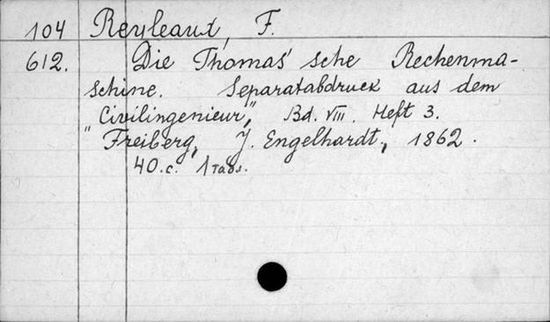 104 Reuleaux, F.
612. Die Thomas'sche Rechenma-
schine. Separatabdruck aus dem
"Civilingenieur", Bd. VIII. Heft 3.
Freiberg, J. Engelhardt, 1862.
40.c. 1 Tabs.